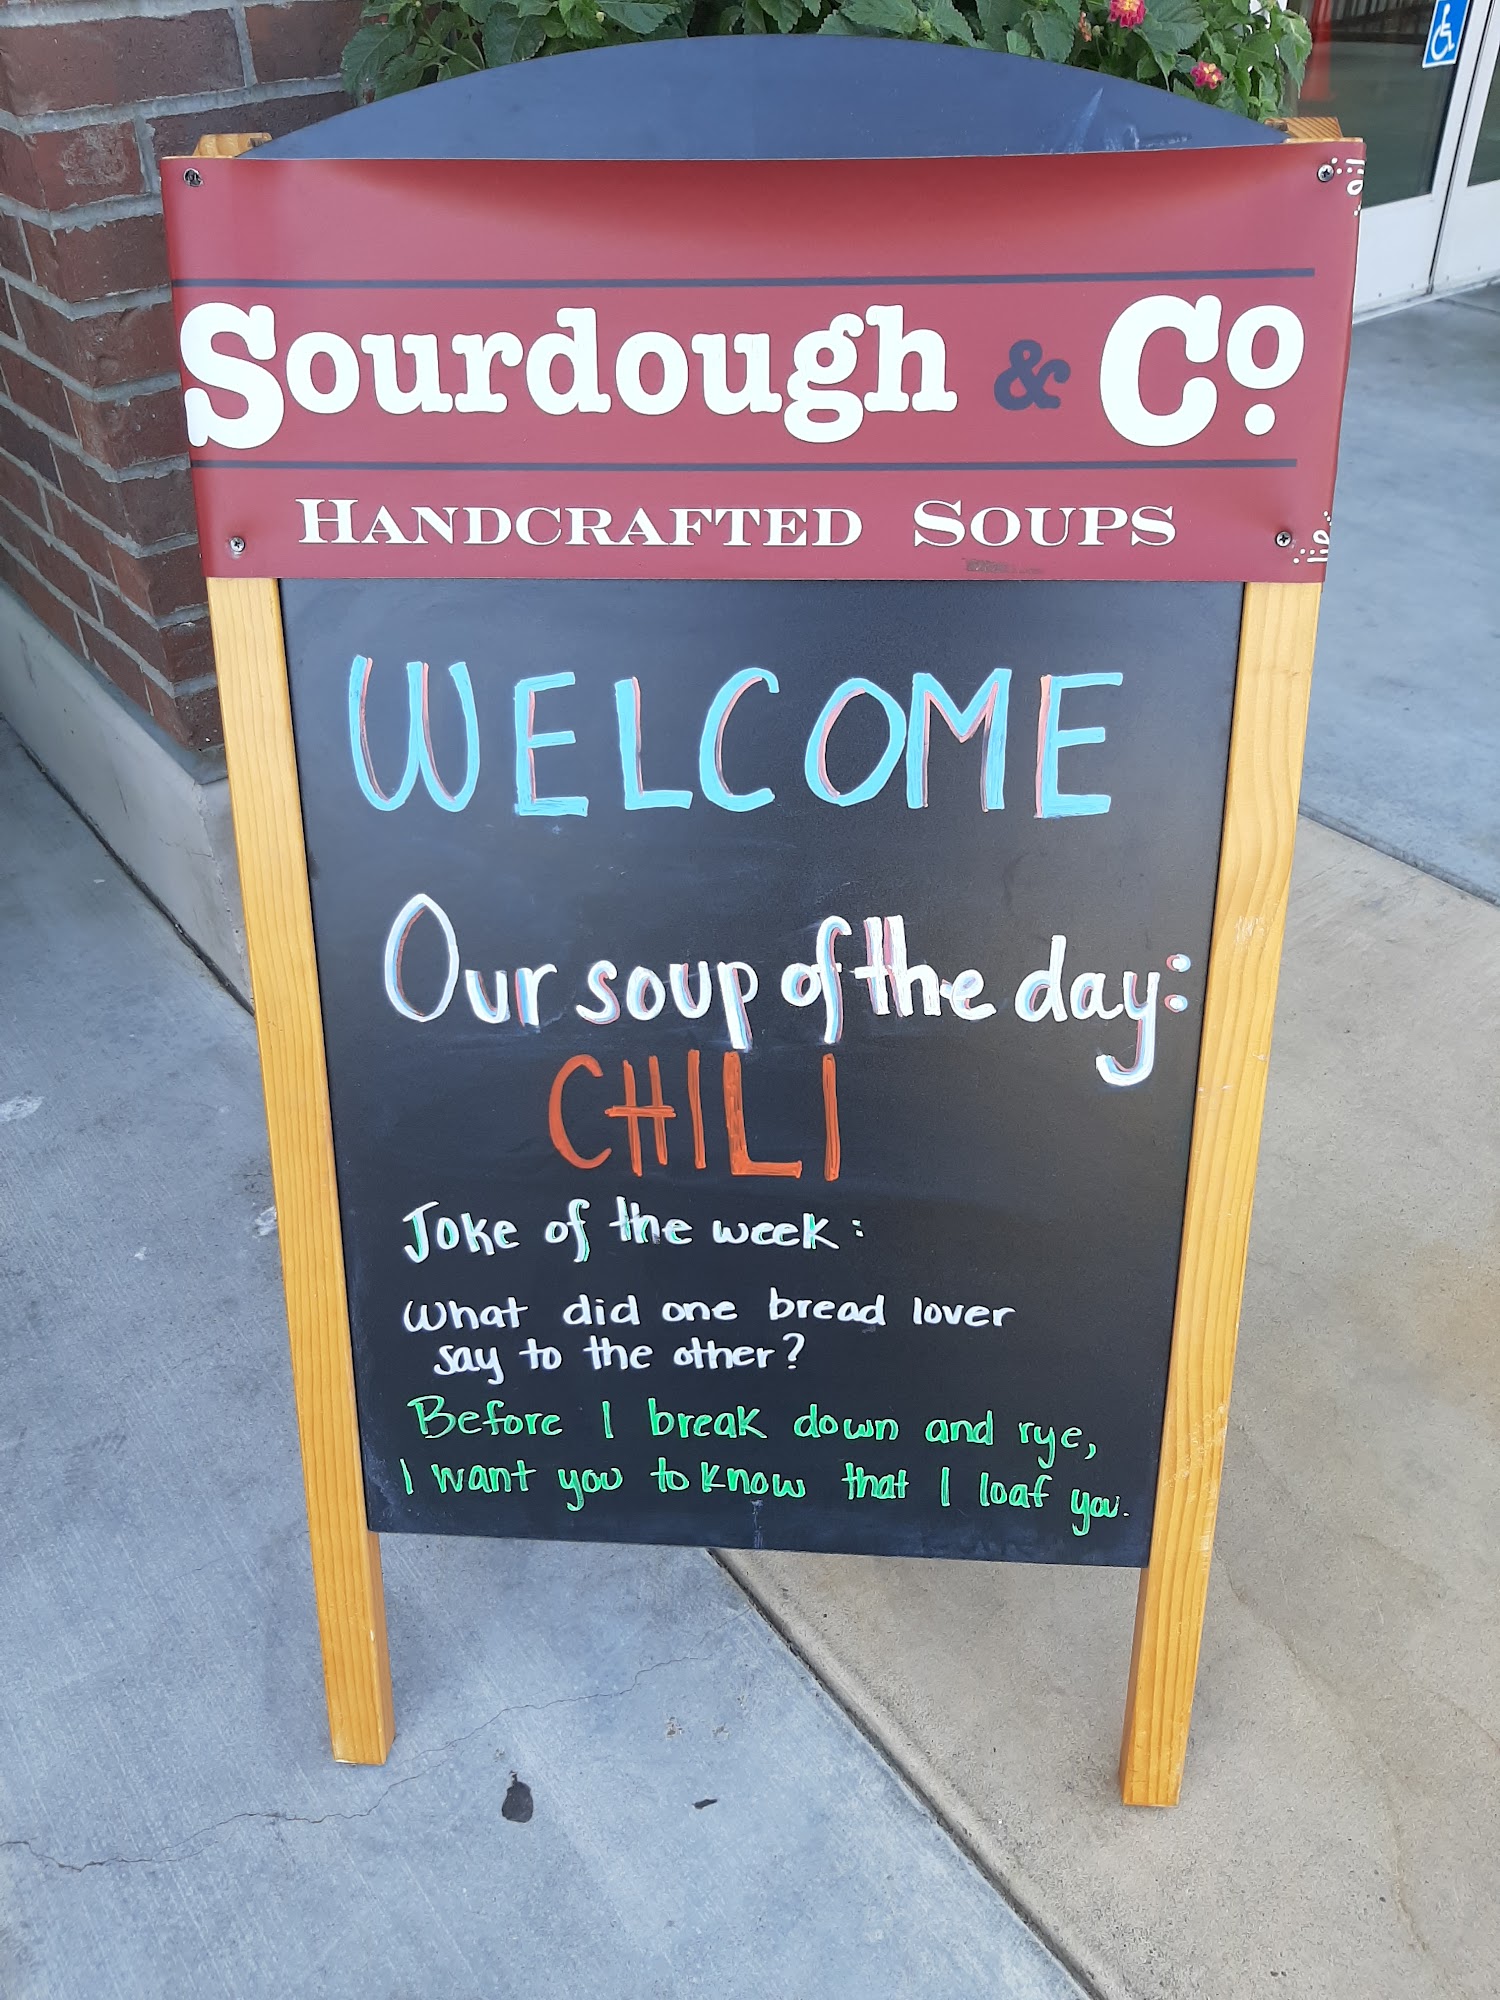 Sourdough & Co.
Handcrafted Soups
WELCOME
Our soup of the day:
CHILI
Joke of the week:
What did one bread lover
say to the other?
Before I break down and rye,
I want you to know that I loaf you.